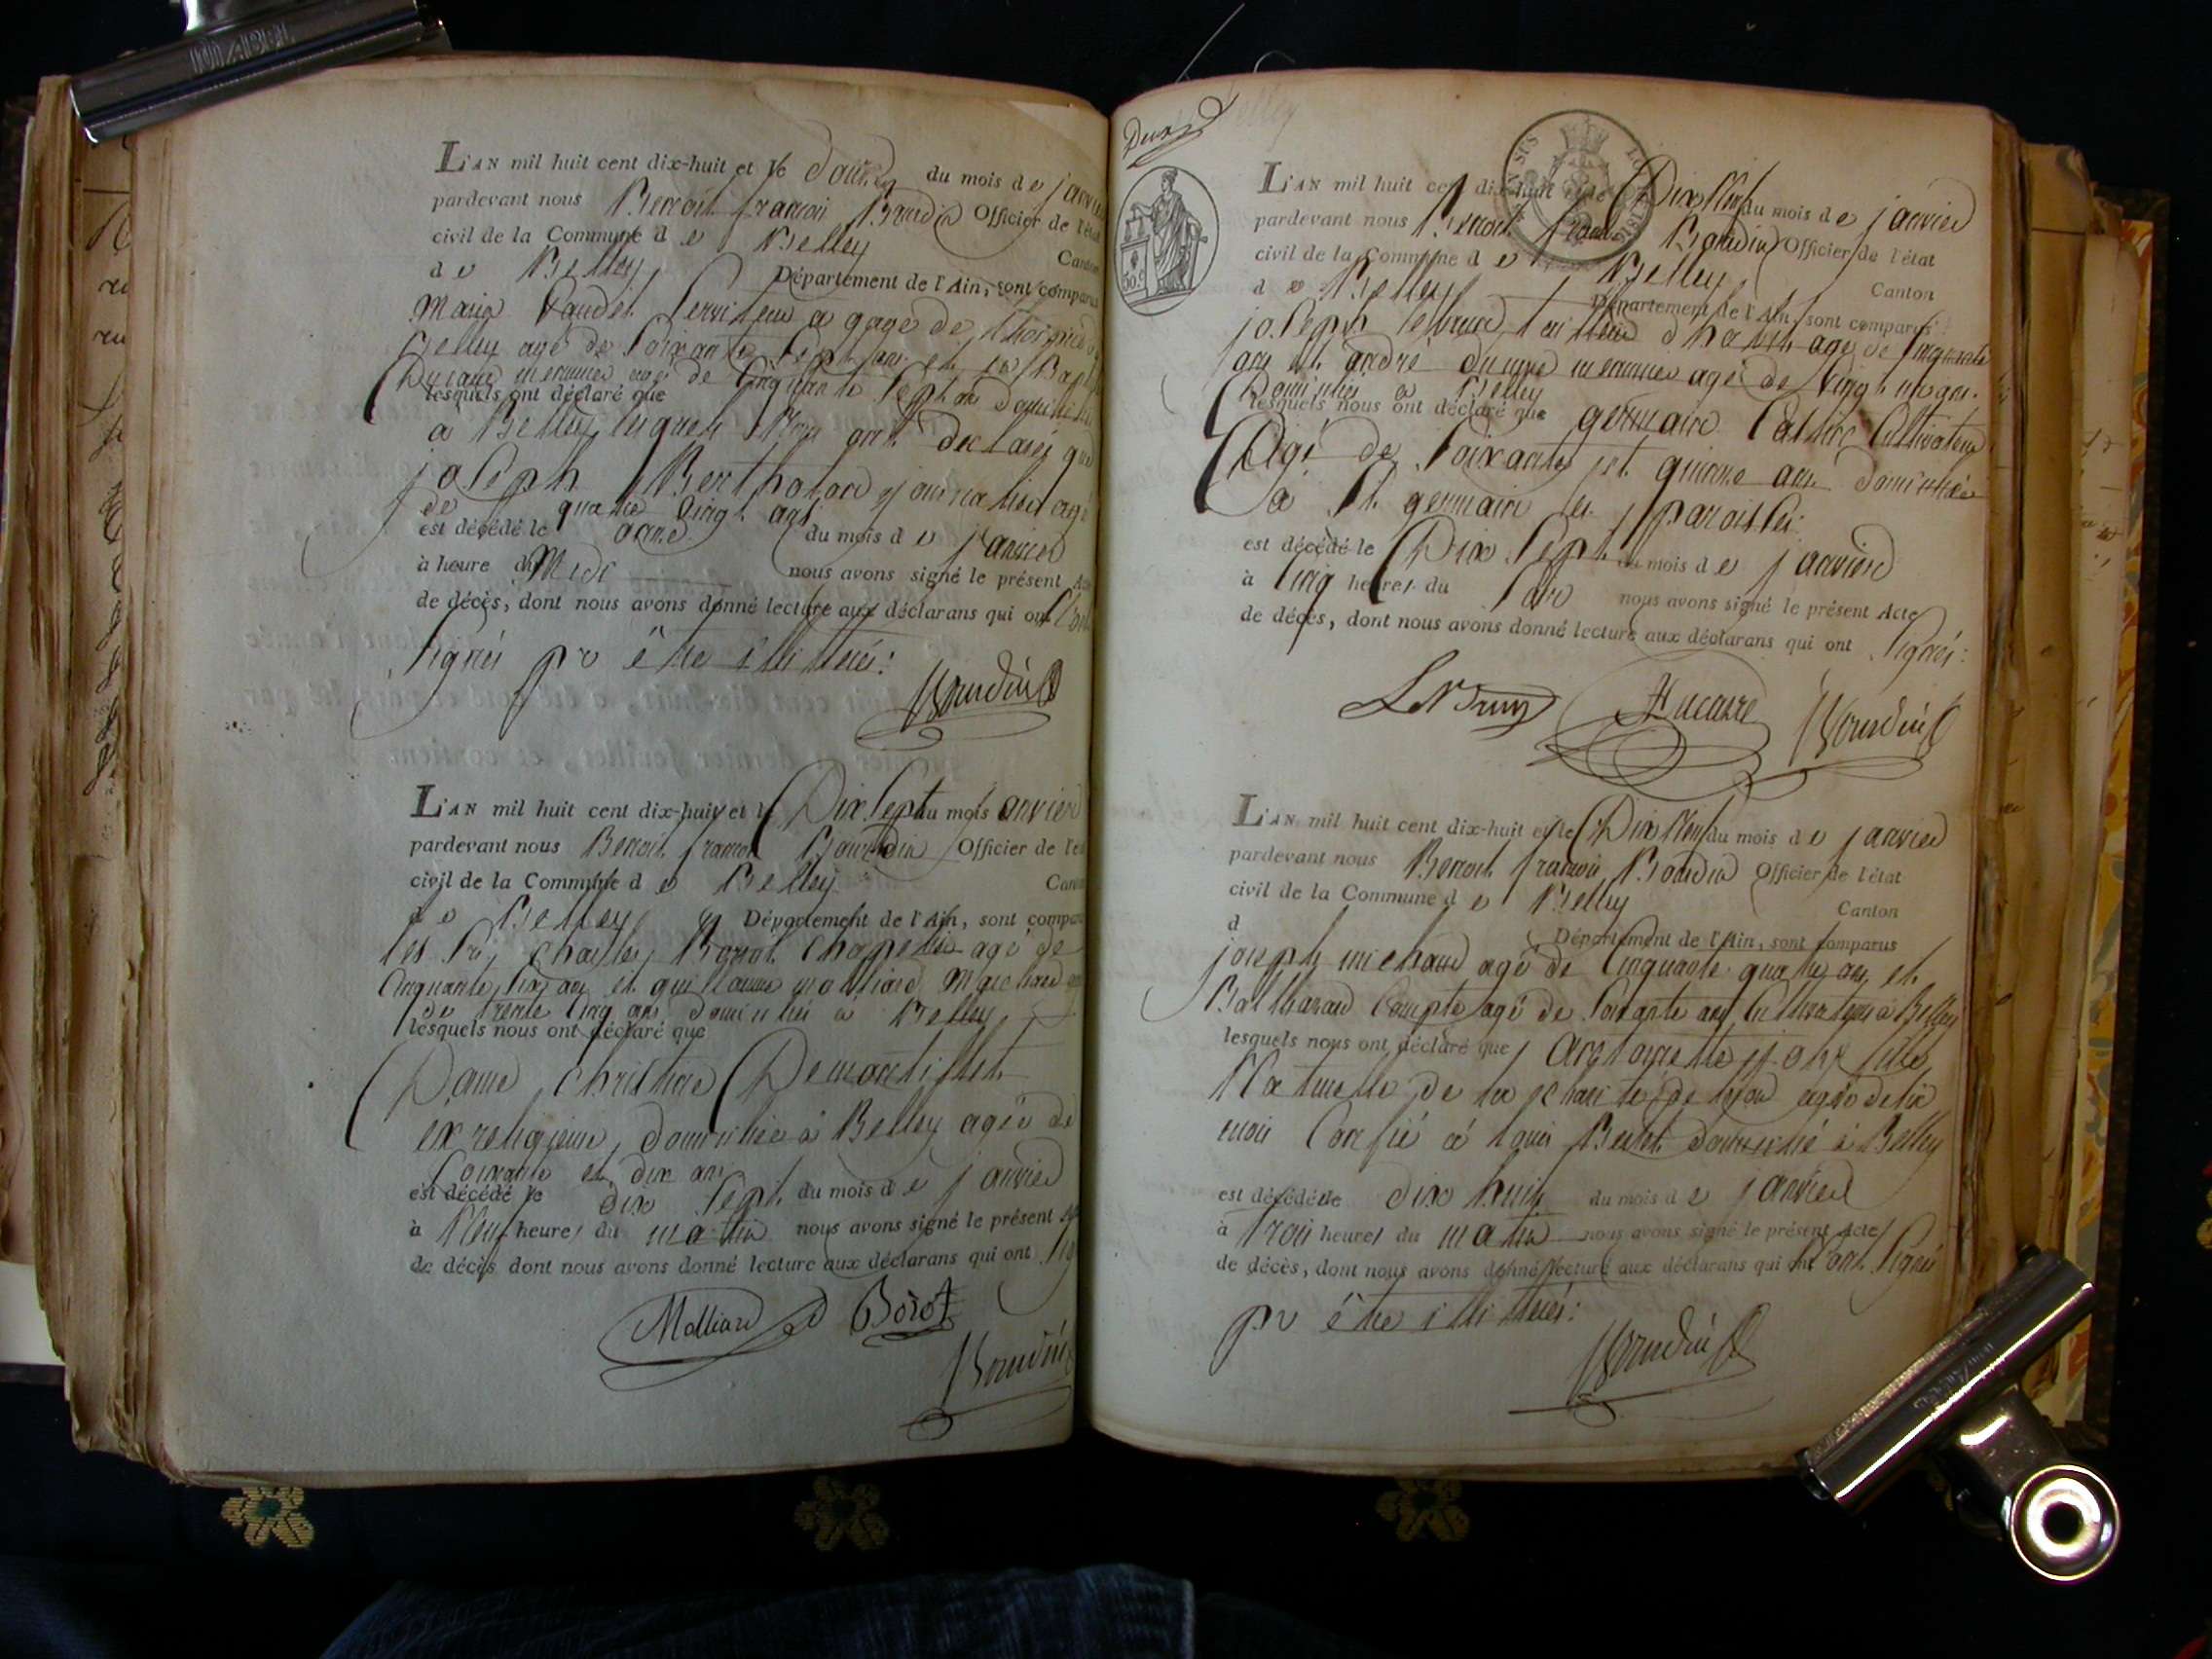 L'AN mil huit cent dix-huit et le douze du mois de janvier
pardevant nous Benoit françois Baudin Officier de l'état
civil de la Commune de Belley Canton
de Belley Département de l'Ain, sont comparus
Serviteur a gage de
Belley agé de Soixante Sept ans et
menuisier agé de Cinquante Sept ans
lesquels ont déclaré que
à Belley lesquels Nous ont déclarés que
joseph Bertholon journalier agé
de quatre Vingt ans
est décédé le onze du mois de janvier
à heure de Midi nous avons signé le présent Acte
de décès, dont nous avons donné lecture aux déclarans qui ont
signés pr être illiterés:
Baudin
L'AN mil huit cent dix-huit et le Dix Sept du mois janvier
pardevant nous Benoit françois Baudin Officier de l'état
civil de la Commune de Belley Canton
de Belley Département de l'Ain, sont comparus
les Srs Charles Borot Chapelier agé de
Cinquante Six ans et guillaume molliard Marchand
de trente Cinq ans domiciliés à Belley
lesquels nous ont déclaré que
Dame Christine Demontillet
éx religieuse, domiciliée à Belley agée de
Soixante et dix ans
est décédé le dix Sept du mois de janvier
à Neuf heures du matin nous avons signé le présent
de décès dont nous avons donné lecture aux déclarans qui ont
Molliard Borot
Baudin
Deux
50 c
L'AN mil huit cent dix-huit et le Dix Neuf du mois de janvier
pardevant nous Benoit Baudin Officier de l'état
civil de la Commune de Belley
de Belley Canton
Département de l'Ain, sont comparus
joseph tailleur d'habits agé de Cinquante
ans et andré menuisier agé de Vingt
Domiciliés a Belley
lesquels nous ont déclaré que germain Cultivateur
Agé de Soixante et quinze ans domicilié
à St. germain les paroisses:
est décédé le Dix Sept du mois de janvier
à Cinq heures du Soir nous avons signé le présent Acte
de décès, dont nous avons donné lecture aux déclarans qui ont Signés:
Baudin
L'AN mil huit cent dix-huit et le Dix Neuf du mois de janvier
pardevant nous Benoit françois Baudin Officier de l'état
civil de la Commune de Belley
d Canton
Département de l'Ain, sont comparus
joseph michaud agé de Cinquante quatre ans et
Balthazard Compte agé de Soixante ans Cultivateurs à Belley
lesquels nous ont déclaré que Antoinette fille
Naturelle de la charité de lyon agée de Six
mois Confié à louis domicilié à Belley
est décédé le dix huit du mois de janvier
à trois heures du matin nous avons signé le présent Acte
de décès, dont nous avons donné lecture aux déclarans qui ont Signés
pr être illiterés:
Baudin